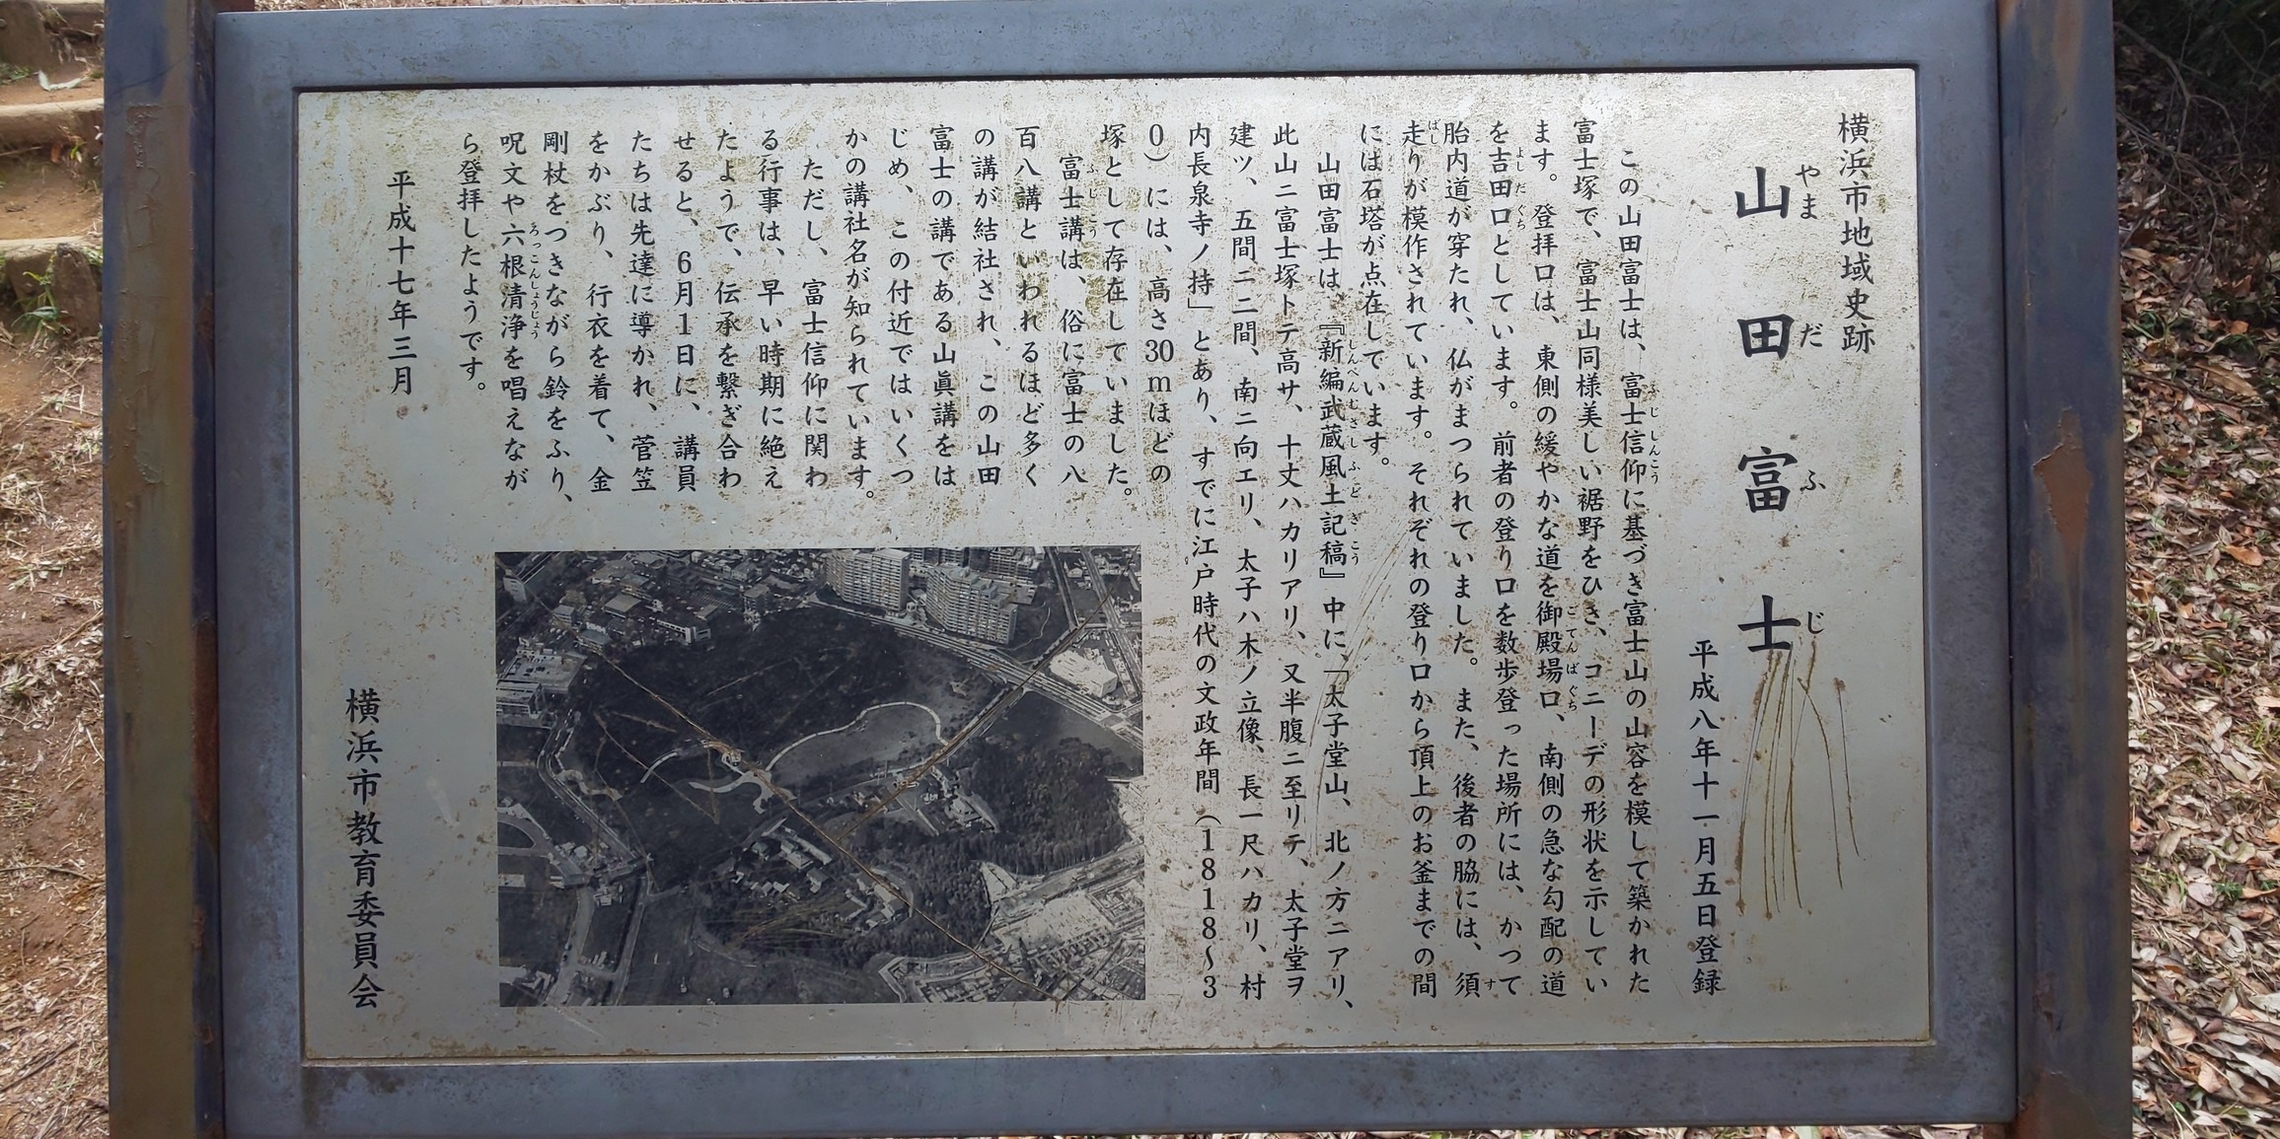 横浜市地域史跡
山田富士
やまだふじ
平成八年十一月五日登録
この山田富士は、富士信仰に基づき富士山の山容を模して築かれた
富士塚で、富士山同様美しい裾野をひき、コニーデの形状を示してい
ます。登拝口は、東側の緩やかな道を御殿場口、南側の急な勾配の道
を吉田口としています。前者の登り口を数歩登った場所には、かつて
胎内道が穿たれ、仏がまつられていました。また、後者の脇には、須
走りが模作されています。それぞれの登り口から頂上のお釜までの間
には石塔が点在しています。
山田富士は、『新編武蔵風土記稿』中に、「太子堂山、北ノ方ニアリ、
此山ニ富士塚トテ高サ、十丈ハカリアリ、又半腹ニ至リテ、太子堂ヲ
建ツ、五間ニ二間、南ニ向エリ、太子ハ木ノ立像、長一尺ハカリ、村
内長泉寺ノ持」とあり、すでに江戸時代の文政年間（1818〜3
0）には、高さ30mほどの
塚として存在していました。
富士講は、俗に富士の八
百八講といわれるほど多く
の講が結社され、この山田
富士の講である山眞講をは
じめ、この付近ではいくつ
かの講社名が知られています。
ただし、富士信仰に関わ
る行事は、早い時期に絶え
たようで、伝承を繋ぎ合わ
せると、6月1日に、講員
たちは先達に導かれ、菅笠
をかぶり、行衣を着て、金
剛杖をつきながら鈴をふり、
呪文や六根清浄を唱えなが
ら登拝したようです。
平成十七年三月
横浜市教育委員会